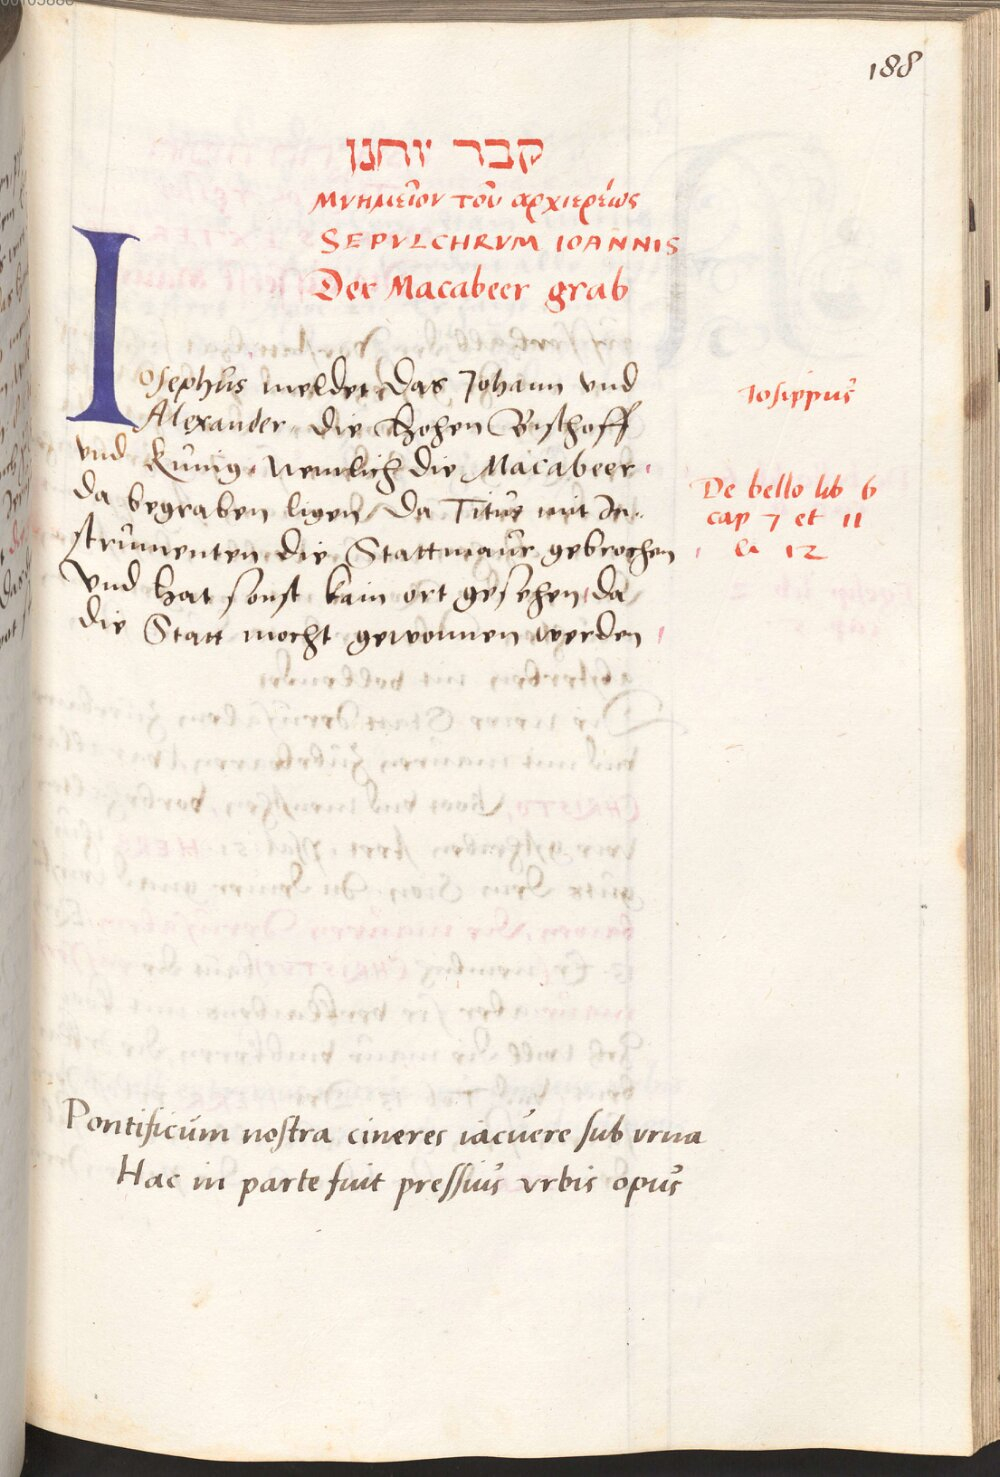 188
קבר יוחנן
μνημεῖον τοῦ αρχιερέως
SEPVLCHRVM IOANNIS
Der Macabeer grab
Iosephus meldet das Johann vnd
Alexander die Hohen Bischoff
vnd Kunig Nemlich die Macabeer
da begraben ligen, da Titus mit In-
strumenten die Stattmaur gebrochen
Vnd hat sonst kain ort gesehen, da
die Statt mocht gewonnen werden
Iosippus
De bello lib 6
cap 7 et 11
& 12
Pontificum nostra cineres iacuere sub vrna
Hac in parte fuit pressius vrbis opus